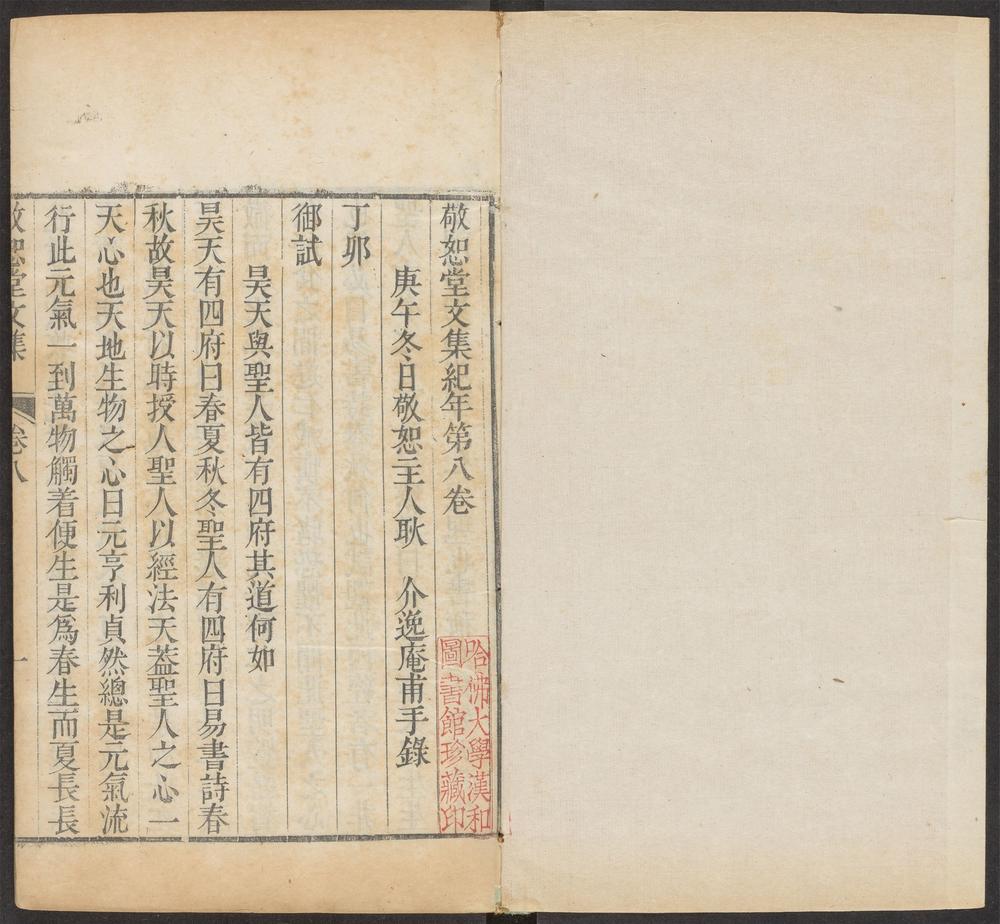 敬恕堂文集紀年第八卷
庚午冬日敬恕主人耿 介逸庵甫手錄
丁卯
御試
昊天與聖人皆有四府其道何如
昊天有四府曰春夏秋冬聖人有四府曰易書詩春
秋故昊天以時授人聖人以經法天蓋聖人之心一
天心也天地生物之心曰元亨利貞然總是元氣流
行此元氣一到萬物觸着便生是爲春生而夏長長
敬恕堂文集 卷八 一
哈佛大學漢和
圖書館珍藏印